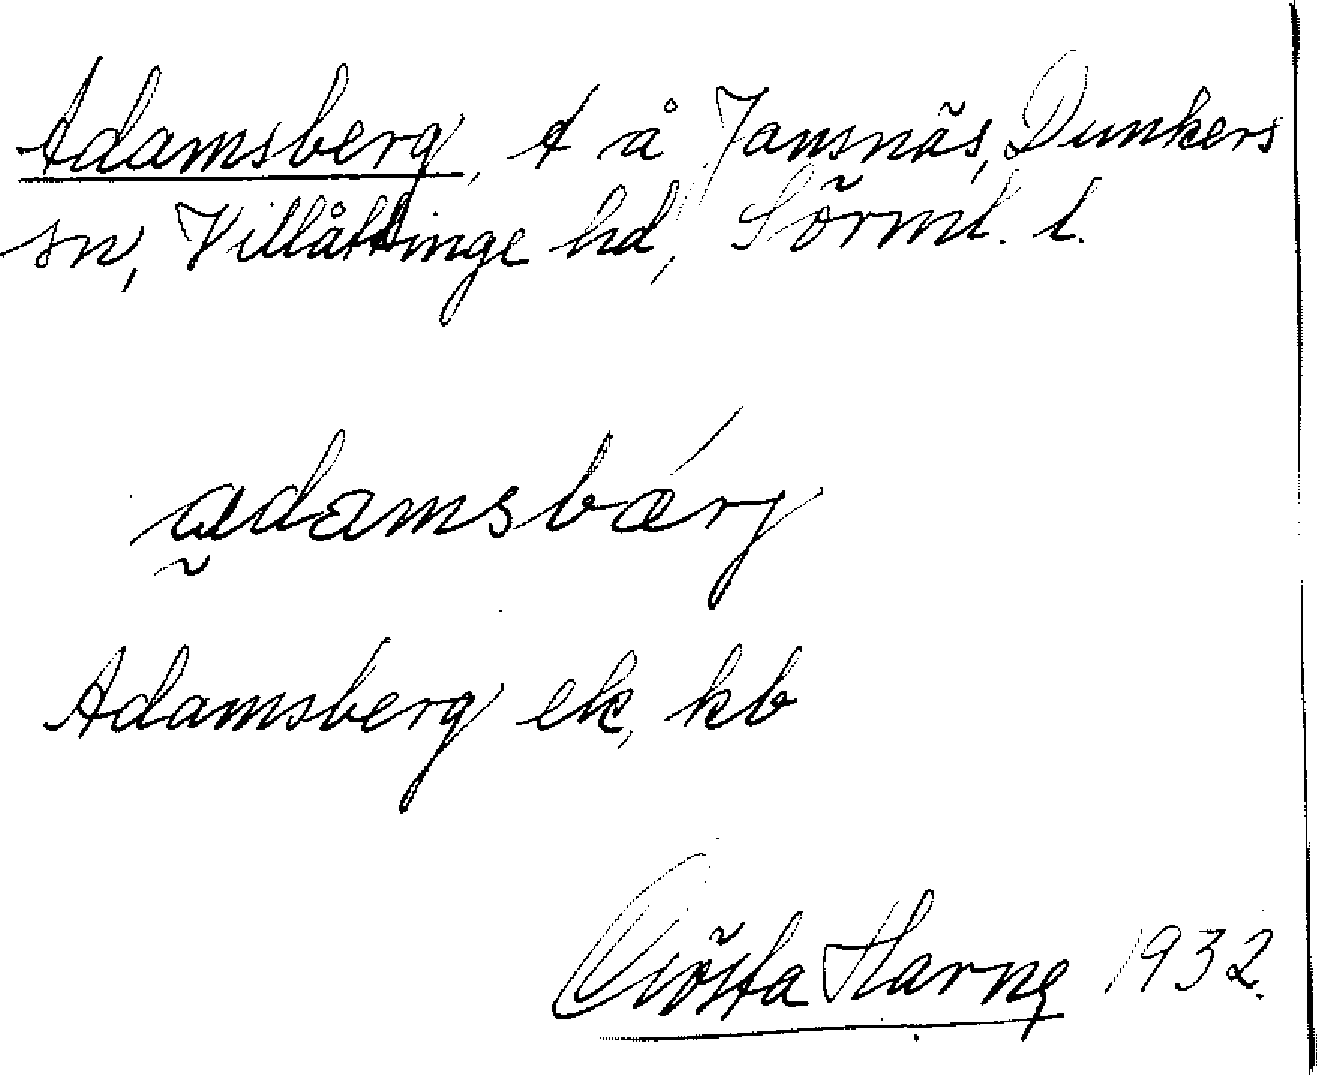 Adamsberg, t å Jamsnäs, Dunkers
sn, Villåttinge hd, Sörml. l.
adamsbærj
Adamsberg ek, kb
Gösta Harne 1932.